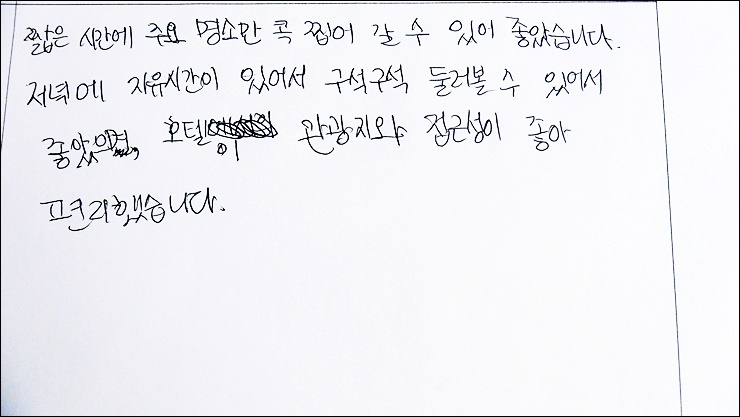 짧은 시간에 주요 명소만 콕 찝어 갈 수 있어 좋았습니다.
저녁에 자유시간이 있어서 구석구석 둘러볼 수 있어서
좋았으며, 호텔이 관광지와 접근성이 좋아
편리했습니다.